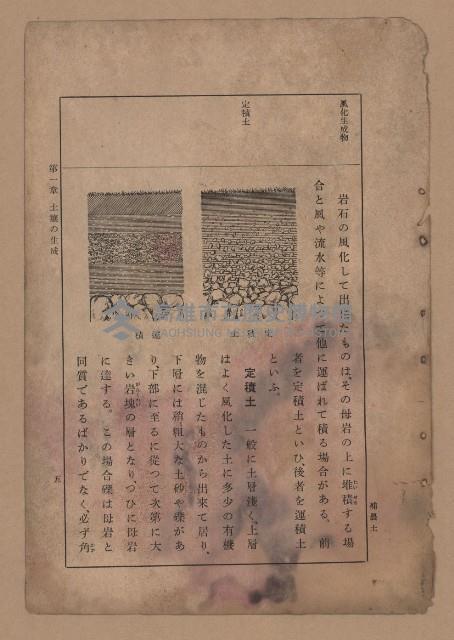 風化生成物
定積土
岩石の風化して出來たものは、その母岩の上に堆積する場
合と風や流水等によつて他に運ばれて積る場合がある。前
者を定積土といひ、後者を運積土
といふ。
定積土 一般に土層淺く、上層
はよく風化した土に多少の有機
物を混じたものから出來て居り、
下層には稍粗大な土砂や礫があ
り、下部に至るに從つて次第に大
きい岩塊の層となり、つひに母岩
に達する。この場合礫は母岩と
同質であるばかりでなく、必ず角
定積土
運積
第一章 土壤の生成
五
高雄市立歷史博物館
KAOHSIUNG MUSEUM OF HISTORY